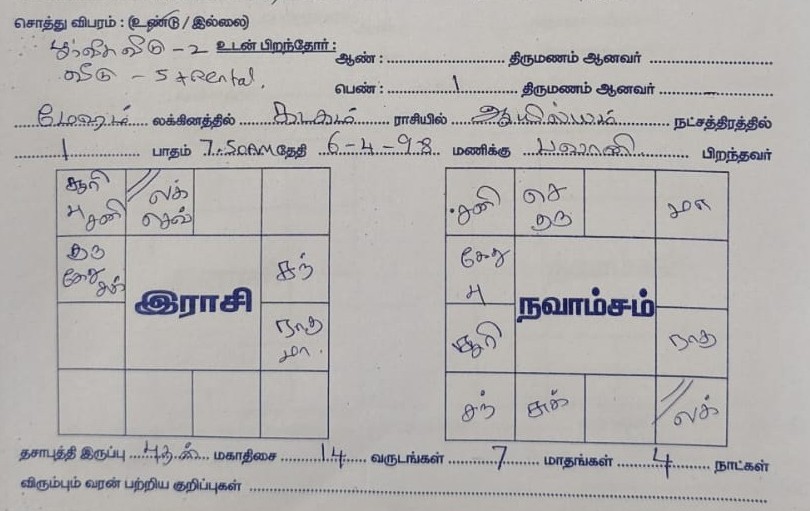 சொத்து விபரம் : (உண்டு / இல்லை)
வீடு - 2 உடன் பிறந்தோர் : ஆண் : திருமணம் ஆனவர்
வீடு - 5 Rental. பெண் : 1 திருமணம் ஆனவர் -
மேஷம் லக்கினத்தில் கடகம் ராசியில் ஆயில்யம் நட்சத்திரத்தில்
1 பாதம் 7.50AM தேதி 6-4-98 மணிக்கு பழனி பிறந்தவர்
சூரி லக் சனி செ மா
பு சனி செவ் குரு
குரு கேது சுக் சந் கேது
இராசி நவாம்சம்
பு
ராகு சூரி ராகு
மா
சந் சுக் லக்
தசாபுத்தி இருப்பு புதன் மகாதிசை 14 வருடங்கள் 7 மாதங்கள் 4 நாட்கள்
விரும்பும் வரன் பற்றிய குறிப்புகள்